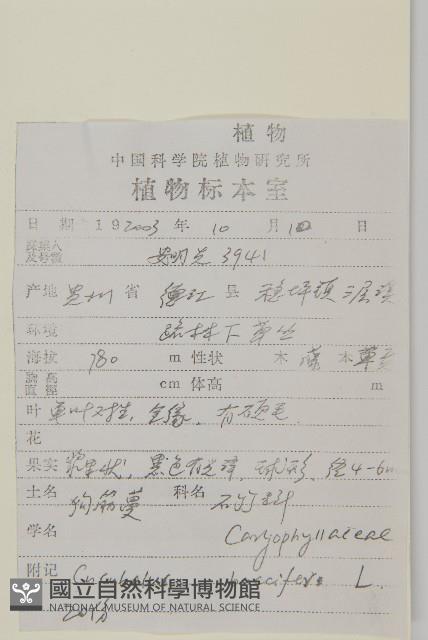 植物
中国科学院植物研究所
植物标本室
日期 19 2003 年 10 月 10 日
采集人
及号数 安明态 3941
产地 贵州 省 德江 县 稳坪镇
环境 疏林下草丛
海拔 780 m 性状 木 藤 本 草
胸高
直径 cm 体高 m
叶 单叶对生, 全缘, 有硬毛
花
果实 浆果状, 黑色有光泽, 球形, 径4-6m
土名 狗筋蔓 科名 石竹科
学名 Caryophyllaceae
附记 Cucubalus baccifera L.
國立自然科學博物館
NATIONAL MUSEUM OF NATURAL SCIENCE